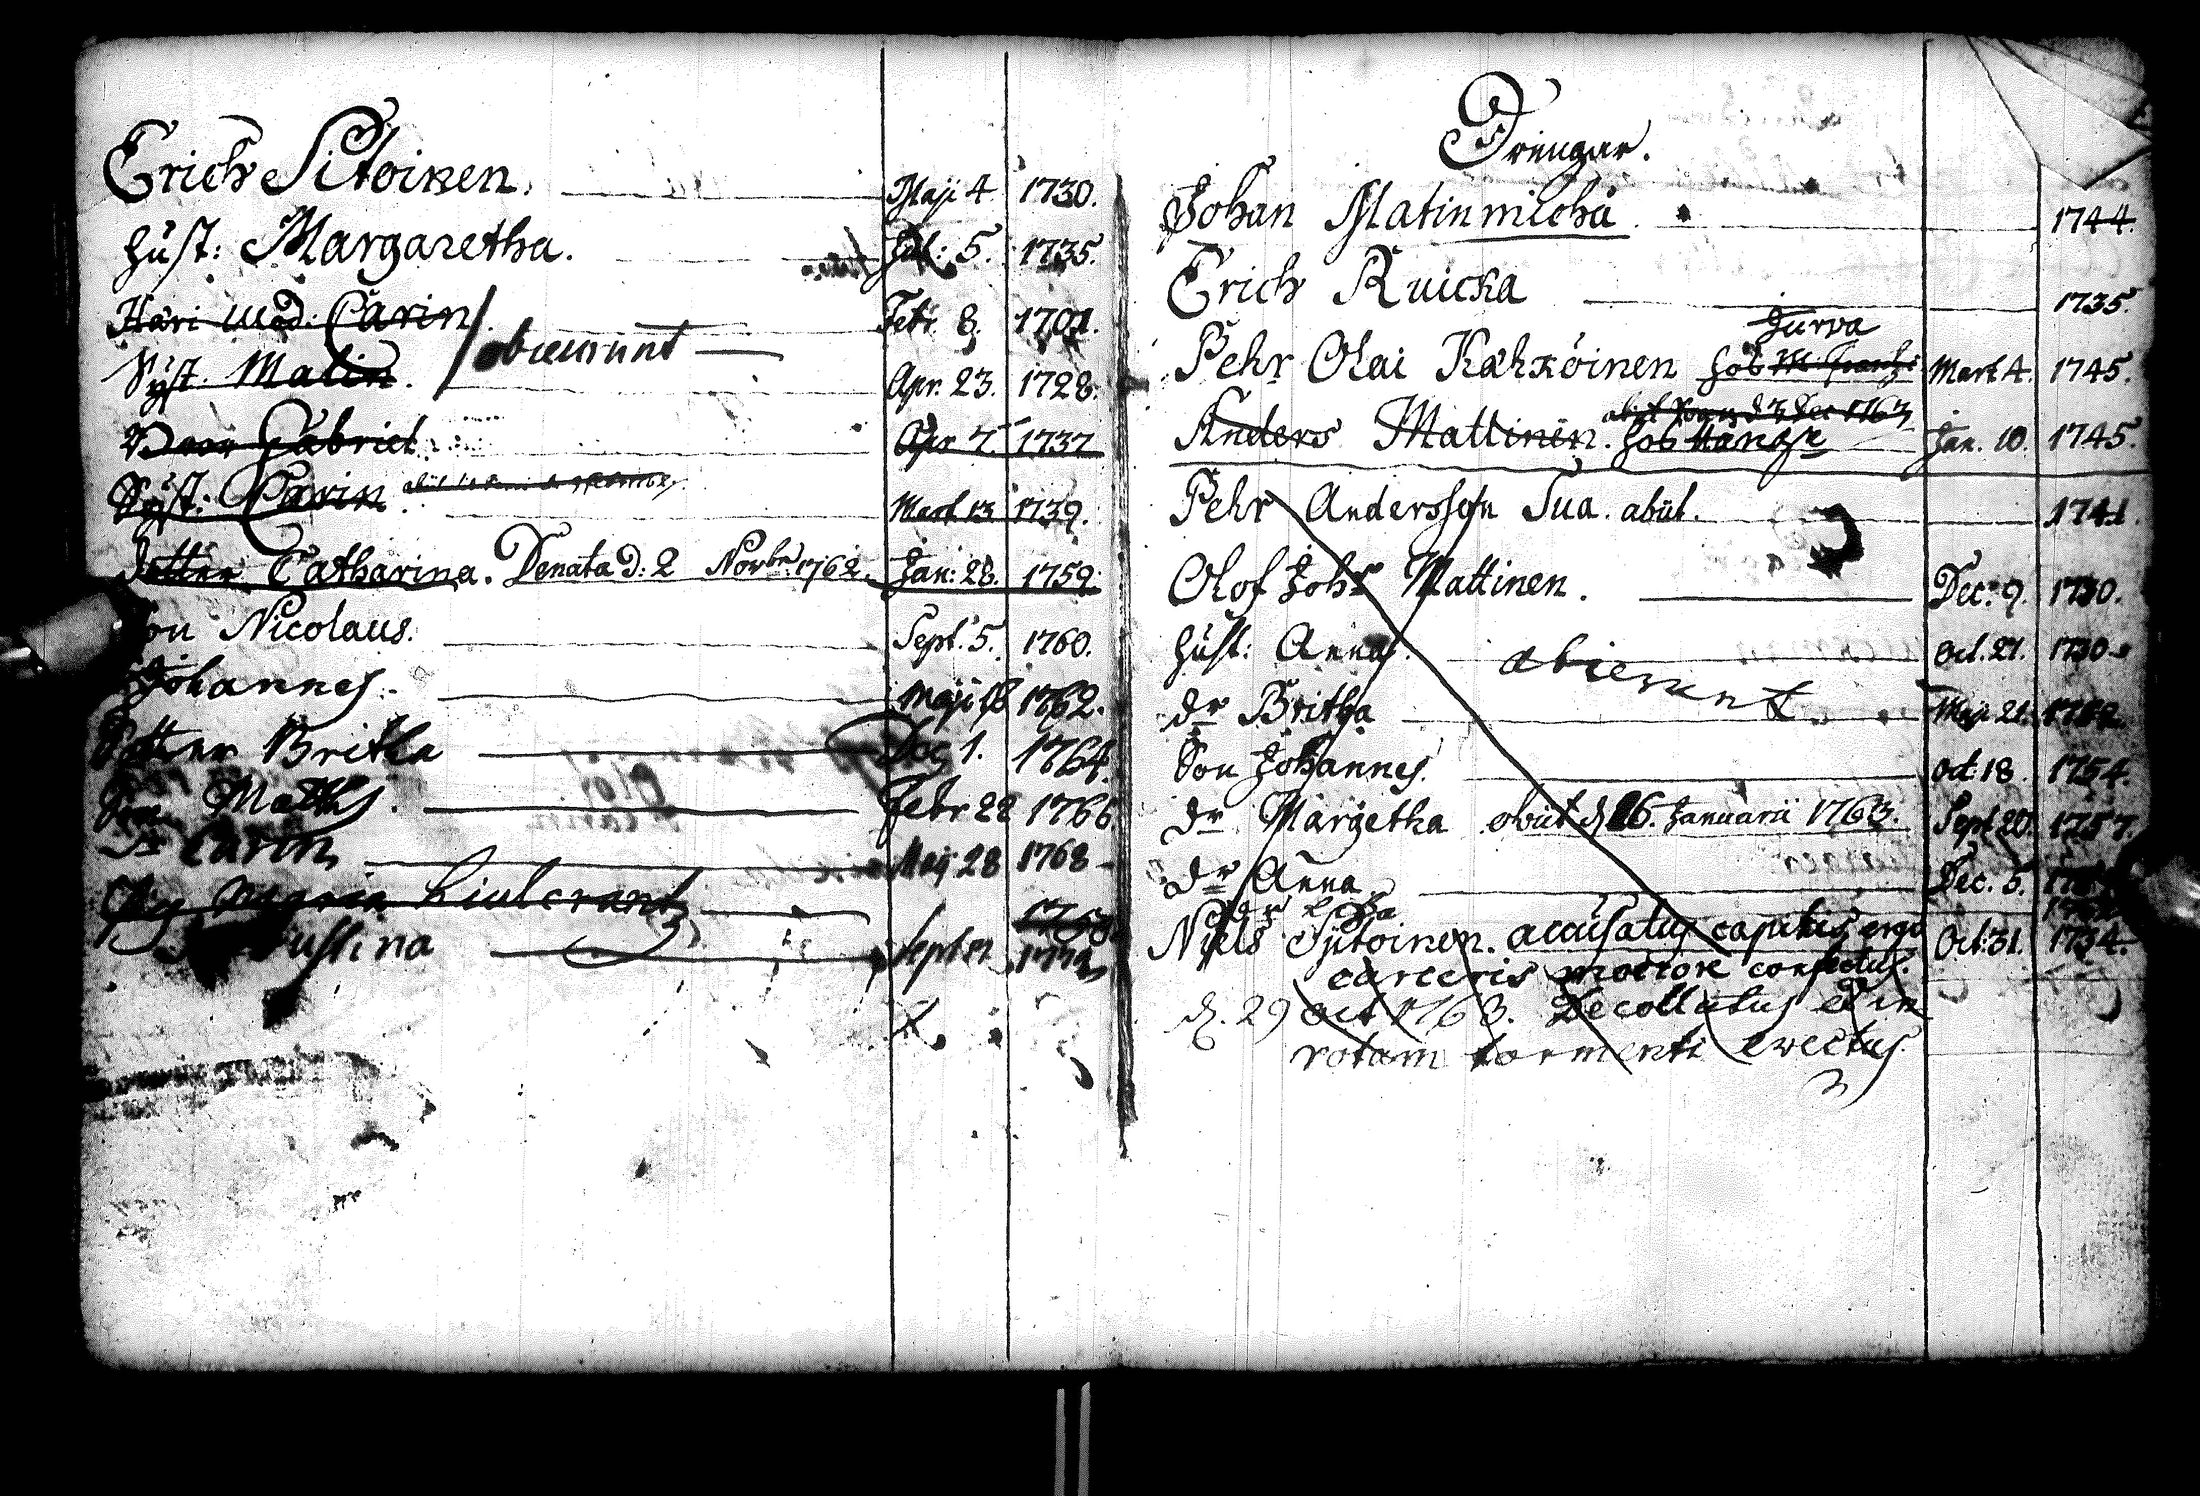 Erich Sitoinen. Maji 4 1730.
Hust: Margaretha. Jul: 5. 1735.
Häri Mod: Carin. Febr. 8. 1701.
Syst. Malin. obierunt Apr. 23. 1728.
Gabriel Apr 7. 1737
Syst: Carin Mart 13 1739.
dotter Catharina. Denata d: 2 Novbr. 1762. Jan: 28. 1759.
Son Nicolaus. Sept. 5. 1760.
Johannes. Maji 1762.
Dotter Britha Dec 1. 1764.
Son Matths. Febr 22 1766.
Dr Carin Maij 28 1768
Maria
ustina Septem
Drengar.
Johan Matinmicha 1744.
Erich Ruicka 1735.
Jurva
Pehr Olai Kahxoinen hos Mart 4. 1745.
Anders Mattinen. hos Jan. 10. 1745.
Pehr Andersson Sua. abiit. 1741.
Olof Johs Mattinen. Dec. 9. 1730.
Hust: Anna. abierunt. Oct. 21. 1730
dr Britha Maji 21.
Son Johannes. Oct 18. 1754.
dr Margetha obiit d 26. Januarii 1763. Sept 20. 1757.
dr Anna Dec. 5.
Niels Sytoinen. accusatus capitis, ergo Oct. 31. 1734.
carceris moerore confectus.
d. 29 Oct 1763. Decollatus et in
rotam tormenti evectus.